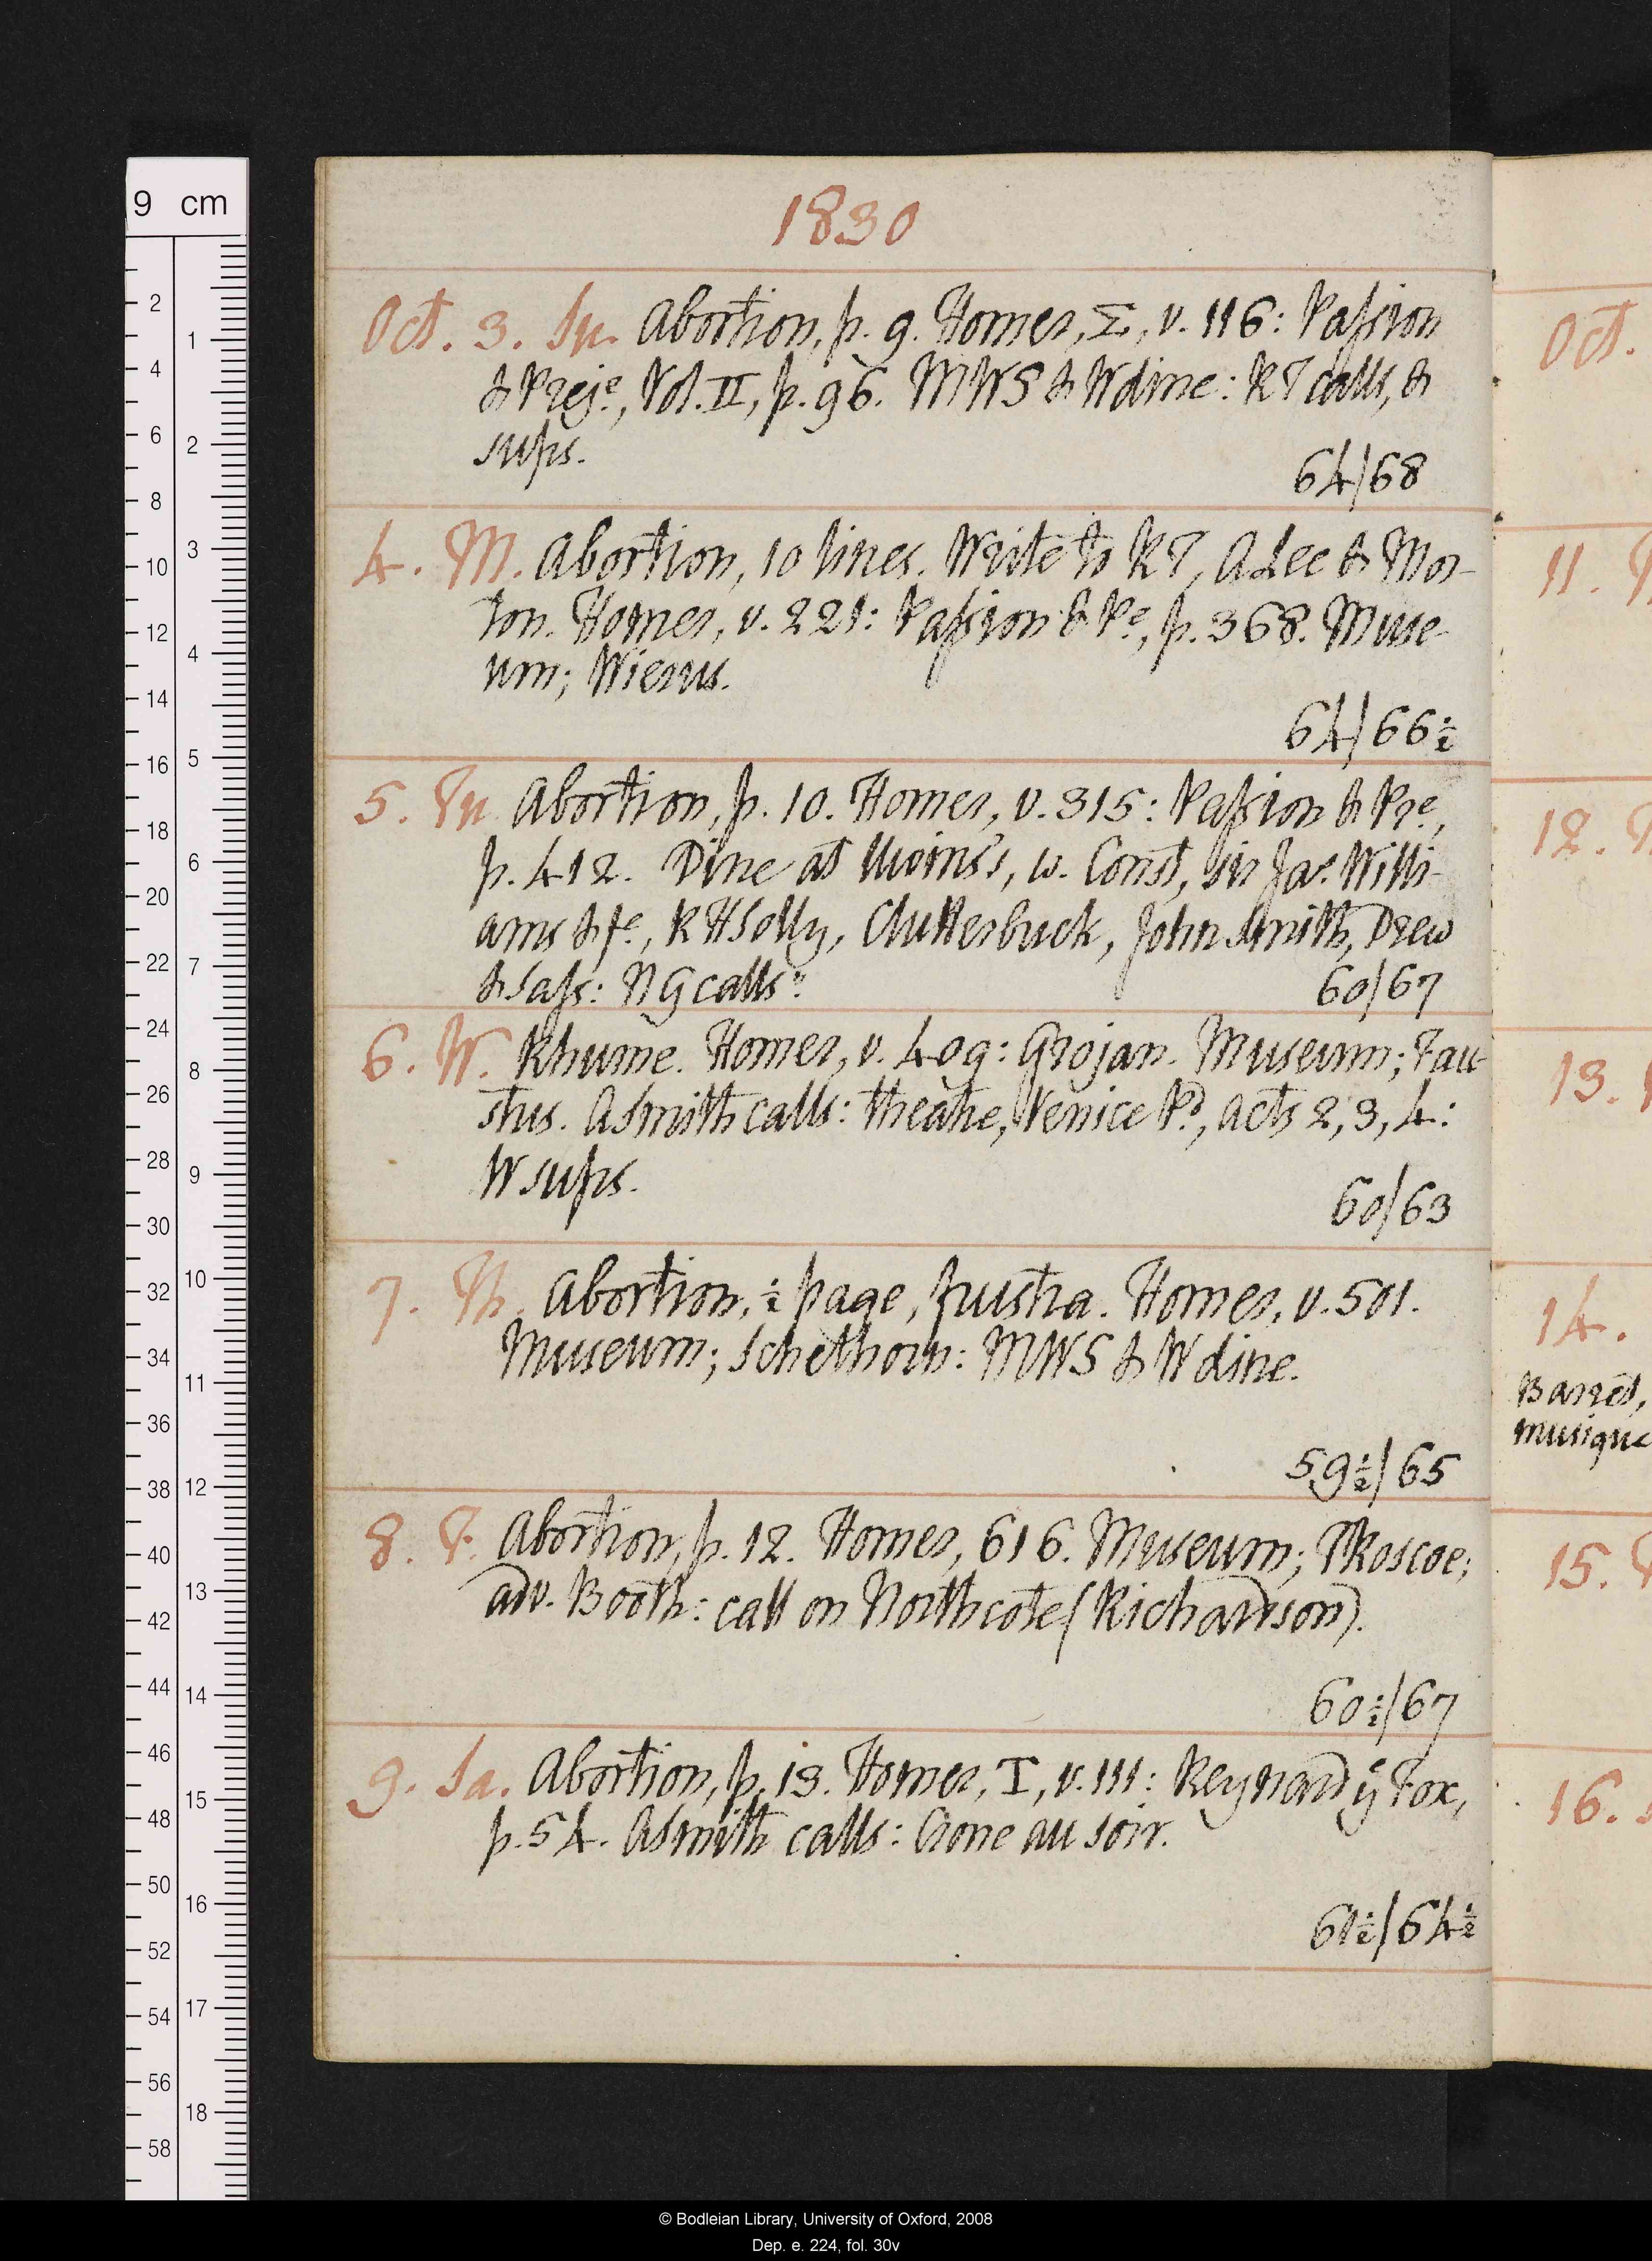 1830
Oct. 3. Su. Abortion, p. 9. Homer, Σ, v. 116: Passion
& Preje, Vol. II, p. 96. MWS & W dine: RT calls, &
sups.
64/68
4. M. Abortion, 10 lines. Write to RT, A Lee & Mor-
ton. Homer, v. 221: Passion & Pe, p. 368. Muse-
um; Wierus.
64/66½
5. Tu. Abortion, p. 10. Homer, v. 315: Passion & Pre,
p. 412. Dine at Uwins's, w. Const, sir Jas. Willi-
ams & fe, RHSolly, Clutterbuck, John Smith, Drew
& Sass: NG calls:
60/67
6. W. Rhume. Homer, v. 409: Grojan. Museum; Fau-
stus. ASmith calls: theatre, Venice Pd, acts 2, 3, 4:
W sups.
60/63
7. Th. Abortion, ½ page, frustra. Homer, v. 501.
Museum; Schelhorn: MWS & W dine.
59½/65
8. F. Abortion, p. 12. Homer, 616. Museum; TRoscoe;
adv. Booth: call on Northcote (Richardson).
60½/67
9. Sa. Abortion, p. 13. Homer, T, v. 111: Reynard ye Fox,
p. 54. ASmith calls: Gone au soir.
61½/64½
Oct.
11.
12.
13.
14.
Barret,
musique
15.
16.
9 cm
2
4
6
8
10
12
14
16
18
20
22
24
26
28
30
32
34
36
38
40
42
44
46
48
50
52
54
56
58
1
2
3
4
5
6
7
8
9
10
11
12
13
14
15
16
17
18
© Bodleian Library, University of Oxford, 2008
Dep. e. 224, fol. 30v